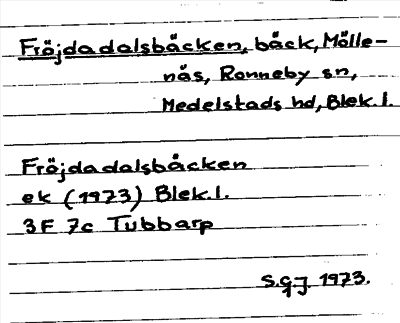 Fröjdadalsbäcken, bäck, Mölle-
näs, Ronneby sn,
Medelstads hd, Blek.l.
Fröjdadalsbäcken
ek (1973) Blek.l.
3F 7c Tubbarp
S.G.J. 1973.